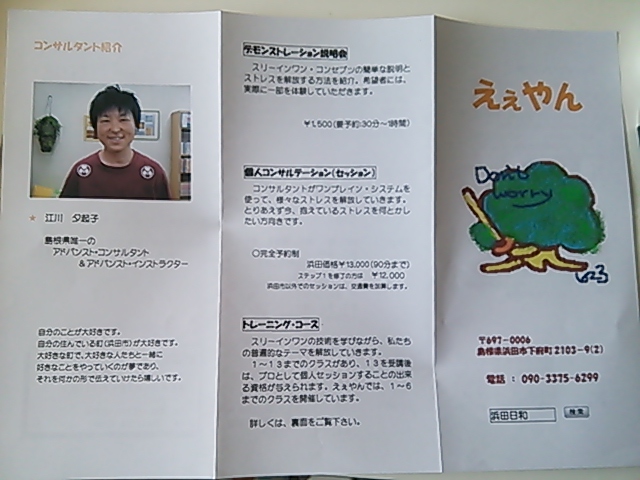 コンサルタント紹介
★ 江川 夕起子
島根県唯一の
アドバンスト・コンサルタント
＆アドバンスト・インストラクター
自分のことが大好きです。
自分の住んでいる町（浜田市）が大好きです。
大好きな町で、大好きな人たちと一緒に
好きなことをやっていくのが夢であり、
それを何かの形で伝えていけたら嬉しいです。
デモンストレーション説明会
スリーインワン・コンセプツの簡単な説明と
ストレスを解放する方法を紹介。希望者には、
実際に一部を体験していただきます。
￥1,500（要予約:30分～1時間）
個人コンサルテーション（セッション）
コンサルタントがワンブレイン・システムを
使って、様々なストレスを解放していきます。
とりあえず今、抱えているストレスを何とかし
たい方向きです。
○完全予約制
浜田価格￥13,000（90分まで）
ステップ1を修了の方は ￥12,000
浜田市以外でのセッションは、交通費を加算します。
トレーニング・コース
スリーインワンの技術を学びながら、私たち
の普遍的なテーマを解放していきます。
1～13までのクラスがあり、13を受講後
は、プロとして個人セッションすることの出来
る資格が与えられます。ええやんでは、1～6
までのクラスを開催しています。
詳しくは、裏面をご覧下さい。
えぇやん
Don't
worry
〒697-0006
島根県浜田市下府町2103-9(2)
電話 : 090-3375-6299
浜田日和 検索